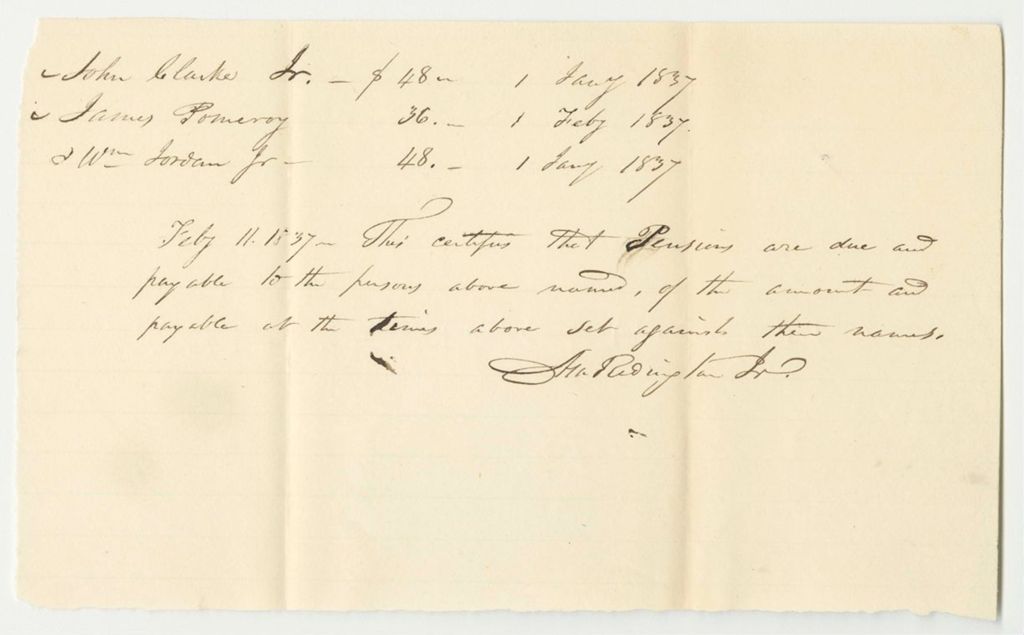 John Clarke Jr. - $ 48 - 1 Jany 1837
James Pomeroy 36. - 1 Feby 1837.
Wm Jordan Jr - 48. - 1 Jany 1837
Feby 11. 1837 - This certifies that Pensions are due and
payable to the persons above named, of the amount and
payable at the times above set against their names.
Asa Redington Jr.